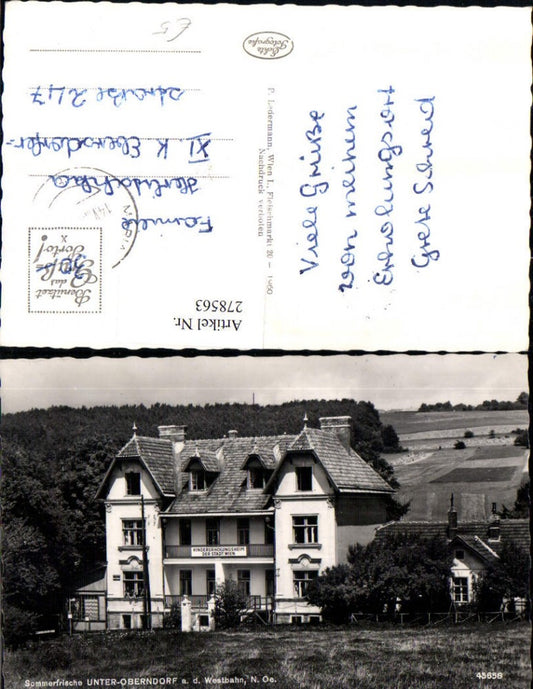 £5
Echte
Fotografie
Viele Grüße
von meinem
Erholungsort
Grete Schneid
P. Ledermann, Wien I., Fleischmarkt 20 – 1960
Nachdruck verboten
Familie
XI. K Ebersdorfer=
straße 247
Benützet
das
Porto!
Artikel Nr.
278563
KINDERERHOLUNGSHEIM
DER STADT WIEN
Sommerfrische UNTER-OBERNDORF a. d. Westbahn, N. Oe.
45656